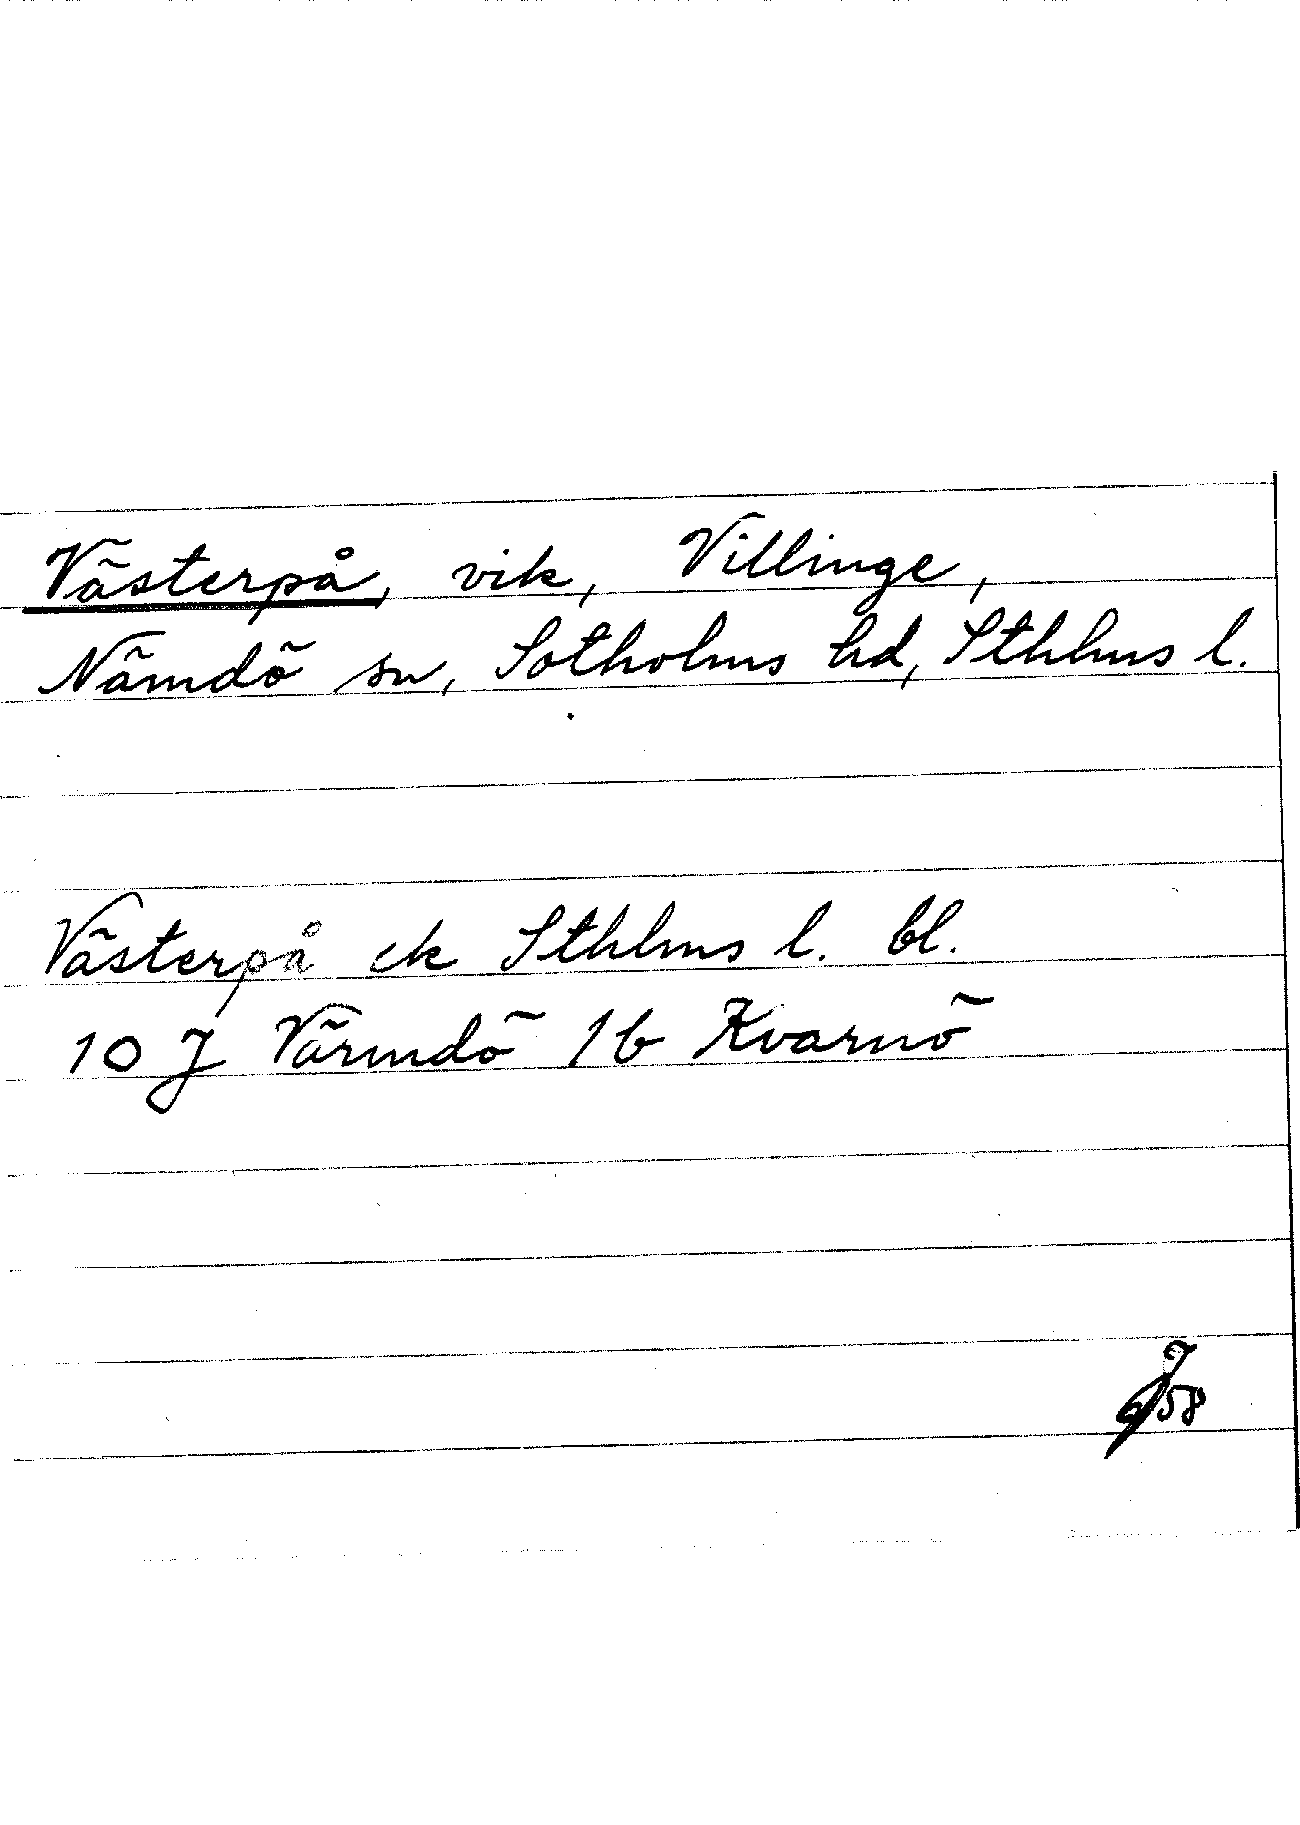 Västerpå, vik, Villinge,
Nämdö sn, Sotholms hd, Sthlms l.
Västerpå ek Sthlms l. bl.
10 J Värmdö 1b Kvarnö
58